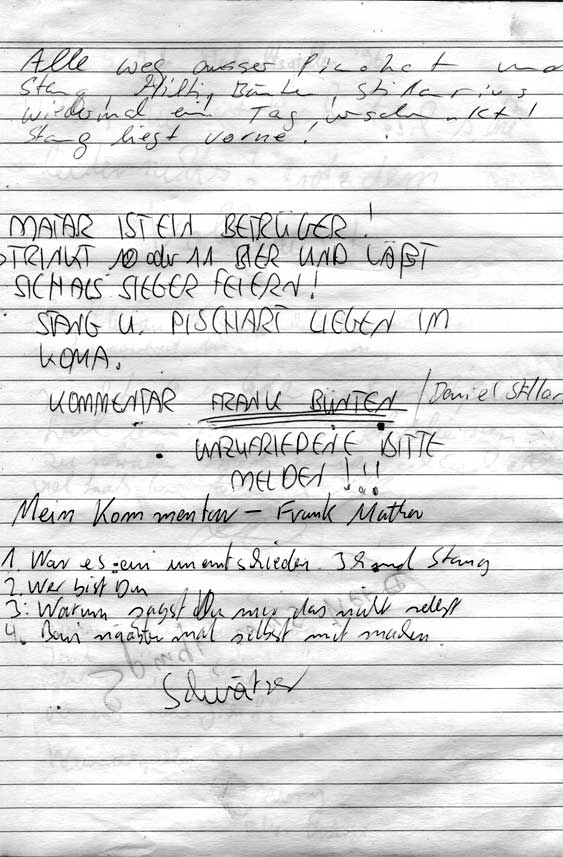 Alle weg ausser Pischat und
Stang, Hilti, Bünten, Stillarius
wiedermal ein Tag, versch
Stang liegt vorne!
MATAR IST EIN BETRÜGER!
TRINKT 10 oder 11 BIER UND LÄßT
SICH ALS SIEGER FEIERN!
STANG U. PISCHART LIEGEN IM
KOMA.
KOMMENTAR FRANK BÜNTEN / Daniel Stillar
UNZUFRIEDENE BITTE
MELDEN !!!
Mein Kommentar – Frank Mather
1. War es ein unentschieden. Stang
2. Wer bist Du
3. Warum sagst Du mir das nicht selbst
4. Beim nächsten mal selbst mit machen.
Schwätzer